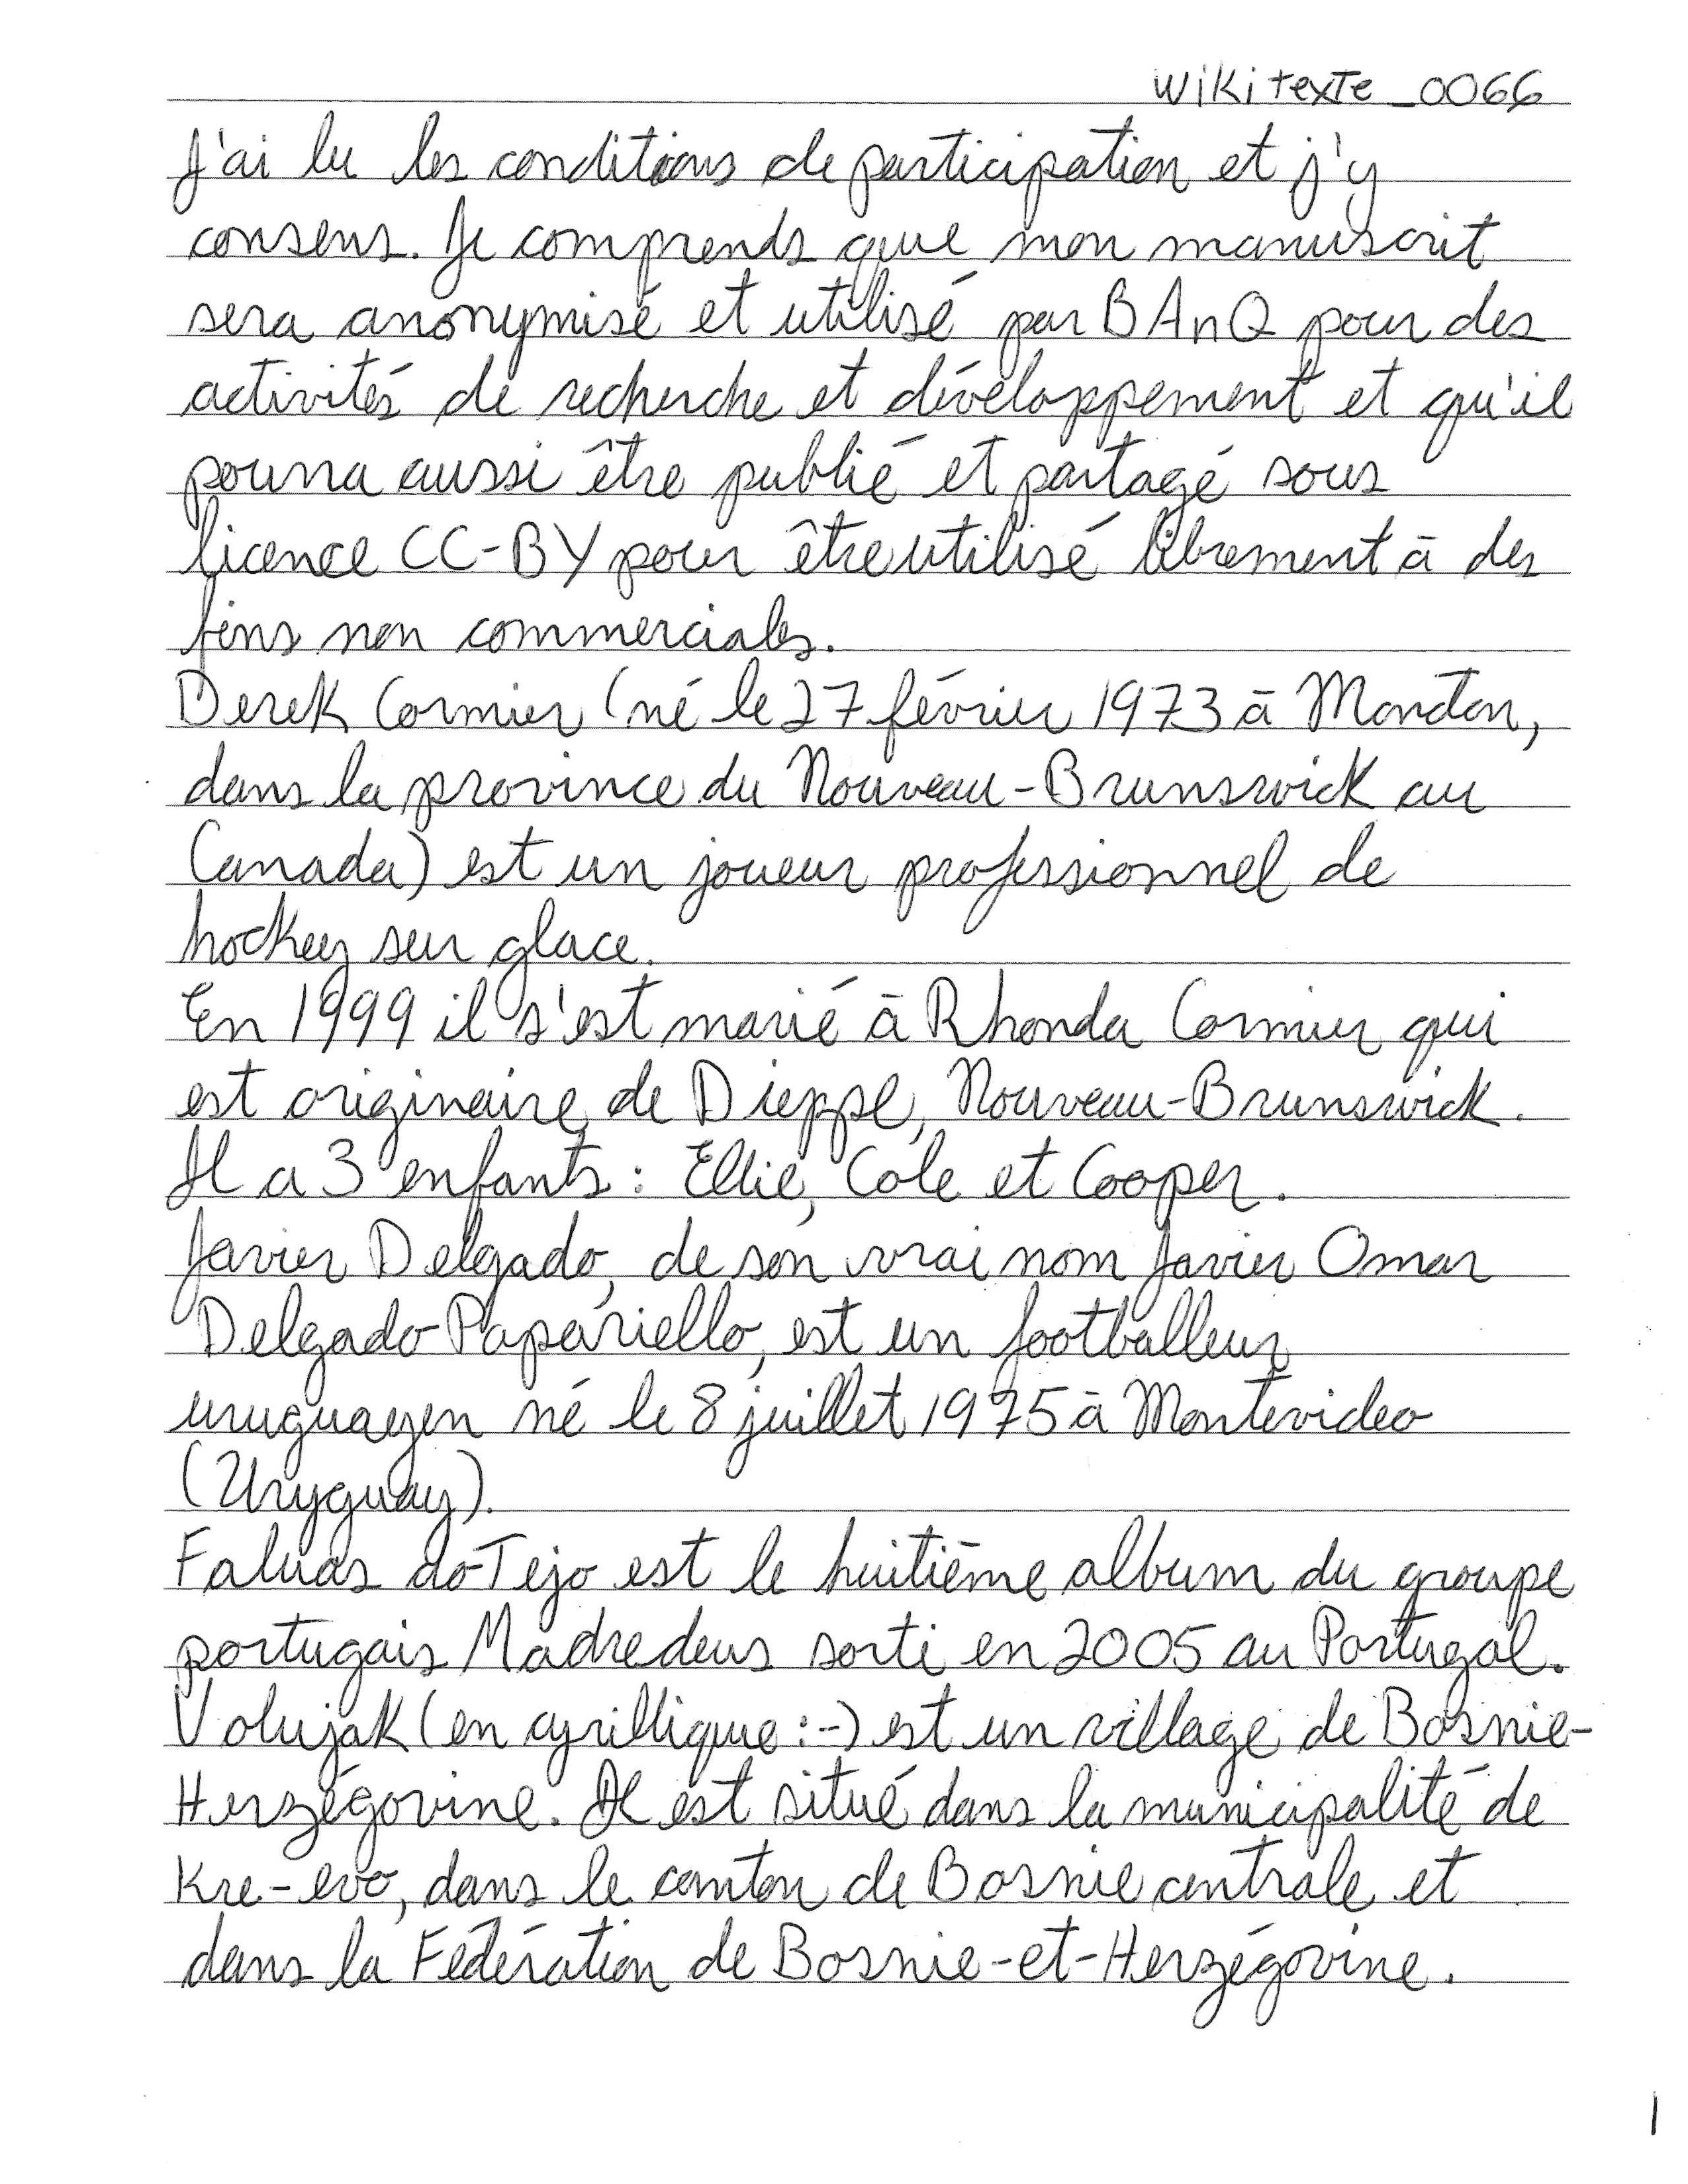 Wikitexte_0066
J'ai lu les conditions de participation et j'y
consens. Je comprends que mon manuscrit
sera anonymisé et utilisé par BAnQ pour des
activités de recherche et développement et qu'il
pourra aussi être publié et partagé sous
licence CC-BY pour être utilisé librement à des
fins non commerciales.
Derek Cormier (né le 27 février 1973 à Moncton,
dans la province du Nouveau-Brunswick au
Canada) est un joueur professionnel de
hockey sur glace.
En 1999 il s'est marié à Rhonda Cormier qui
est originaire de Dieppe, Nouveau-Brunswick.
Il a 3 enfants : Ellie, Cole et Cooper.
Javier Delgado, de son vrai nom Javier Omar
Delgado Papariello, est un footballeur
uruguayen né le 8 juillet 1975 à Montevideo
(Uryguay).
Faluas do Tejo est le huitième album du groupe
portugais Madredeus sorti en 2005 au Portugal.
Volujak (en cyrillique :-) est un village de Bosnie-
Herzégovine. Il est situé dans la municipalité de
Kre-evo, dans le canton de Bosnie centrale et
dans la Fédération de Bosnie-et-Herzégovine.
1